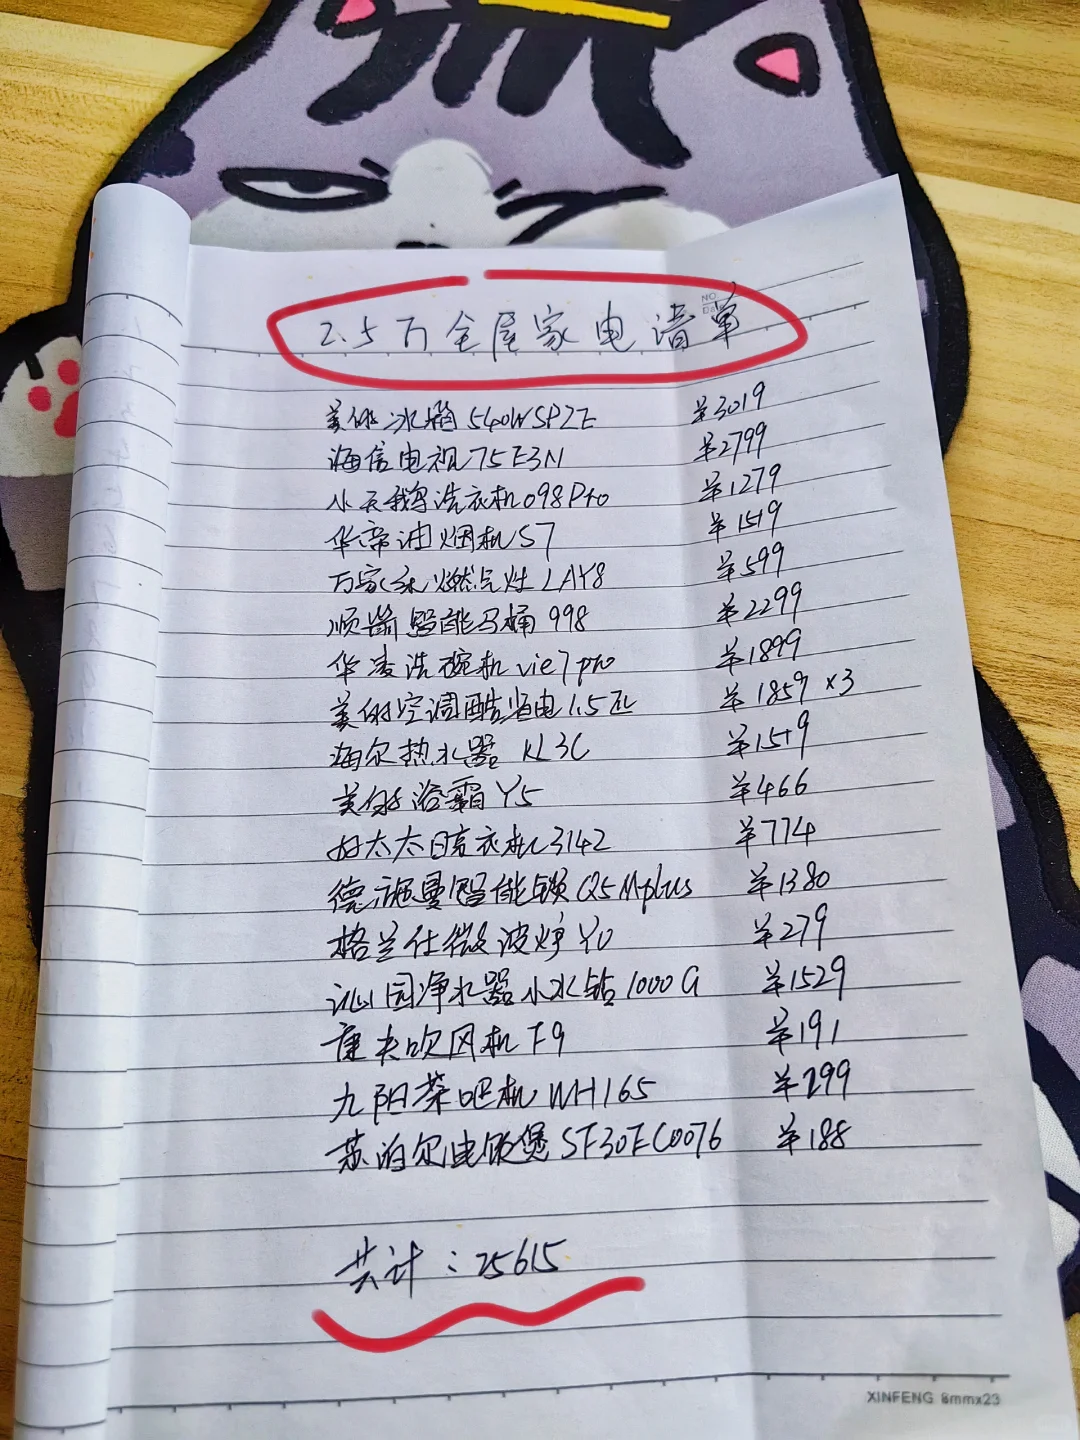 NO
Da
2.5万全屋家电清单
美的冰箱540WSPZE ¥3019
海信电视75E3N ¥2799
小天鹅洗衣机098Pro ¥1279
华帝油烟机S7 ¥1519
万家乐燃气灶LAY8 ¥599
顺箭智能马桶998 ¥2299
华凌洗碗机vie7pro ¥1899
美的空调酷省电1.5匹 ¥1859×3
海尔热水器 KL3C ¥1519
美的浴霸Y5 ¥466
好太太晾衣机3142 ¥774
德施曼智能锁Q5Mplus ¥1380
格兰仕微波炉Y0 ¥279
沁园净水器小水钻1000G ¥1529
康夫吹风机F9 ¥191
九阳茶吧机WH165 ¥299
苏泊尔电饭煲SF30FC0076 ¥188
共计：25615
XINFENG 8mmx23